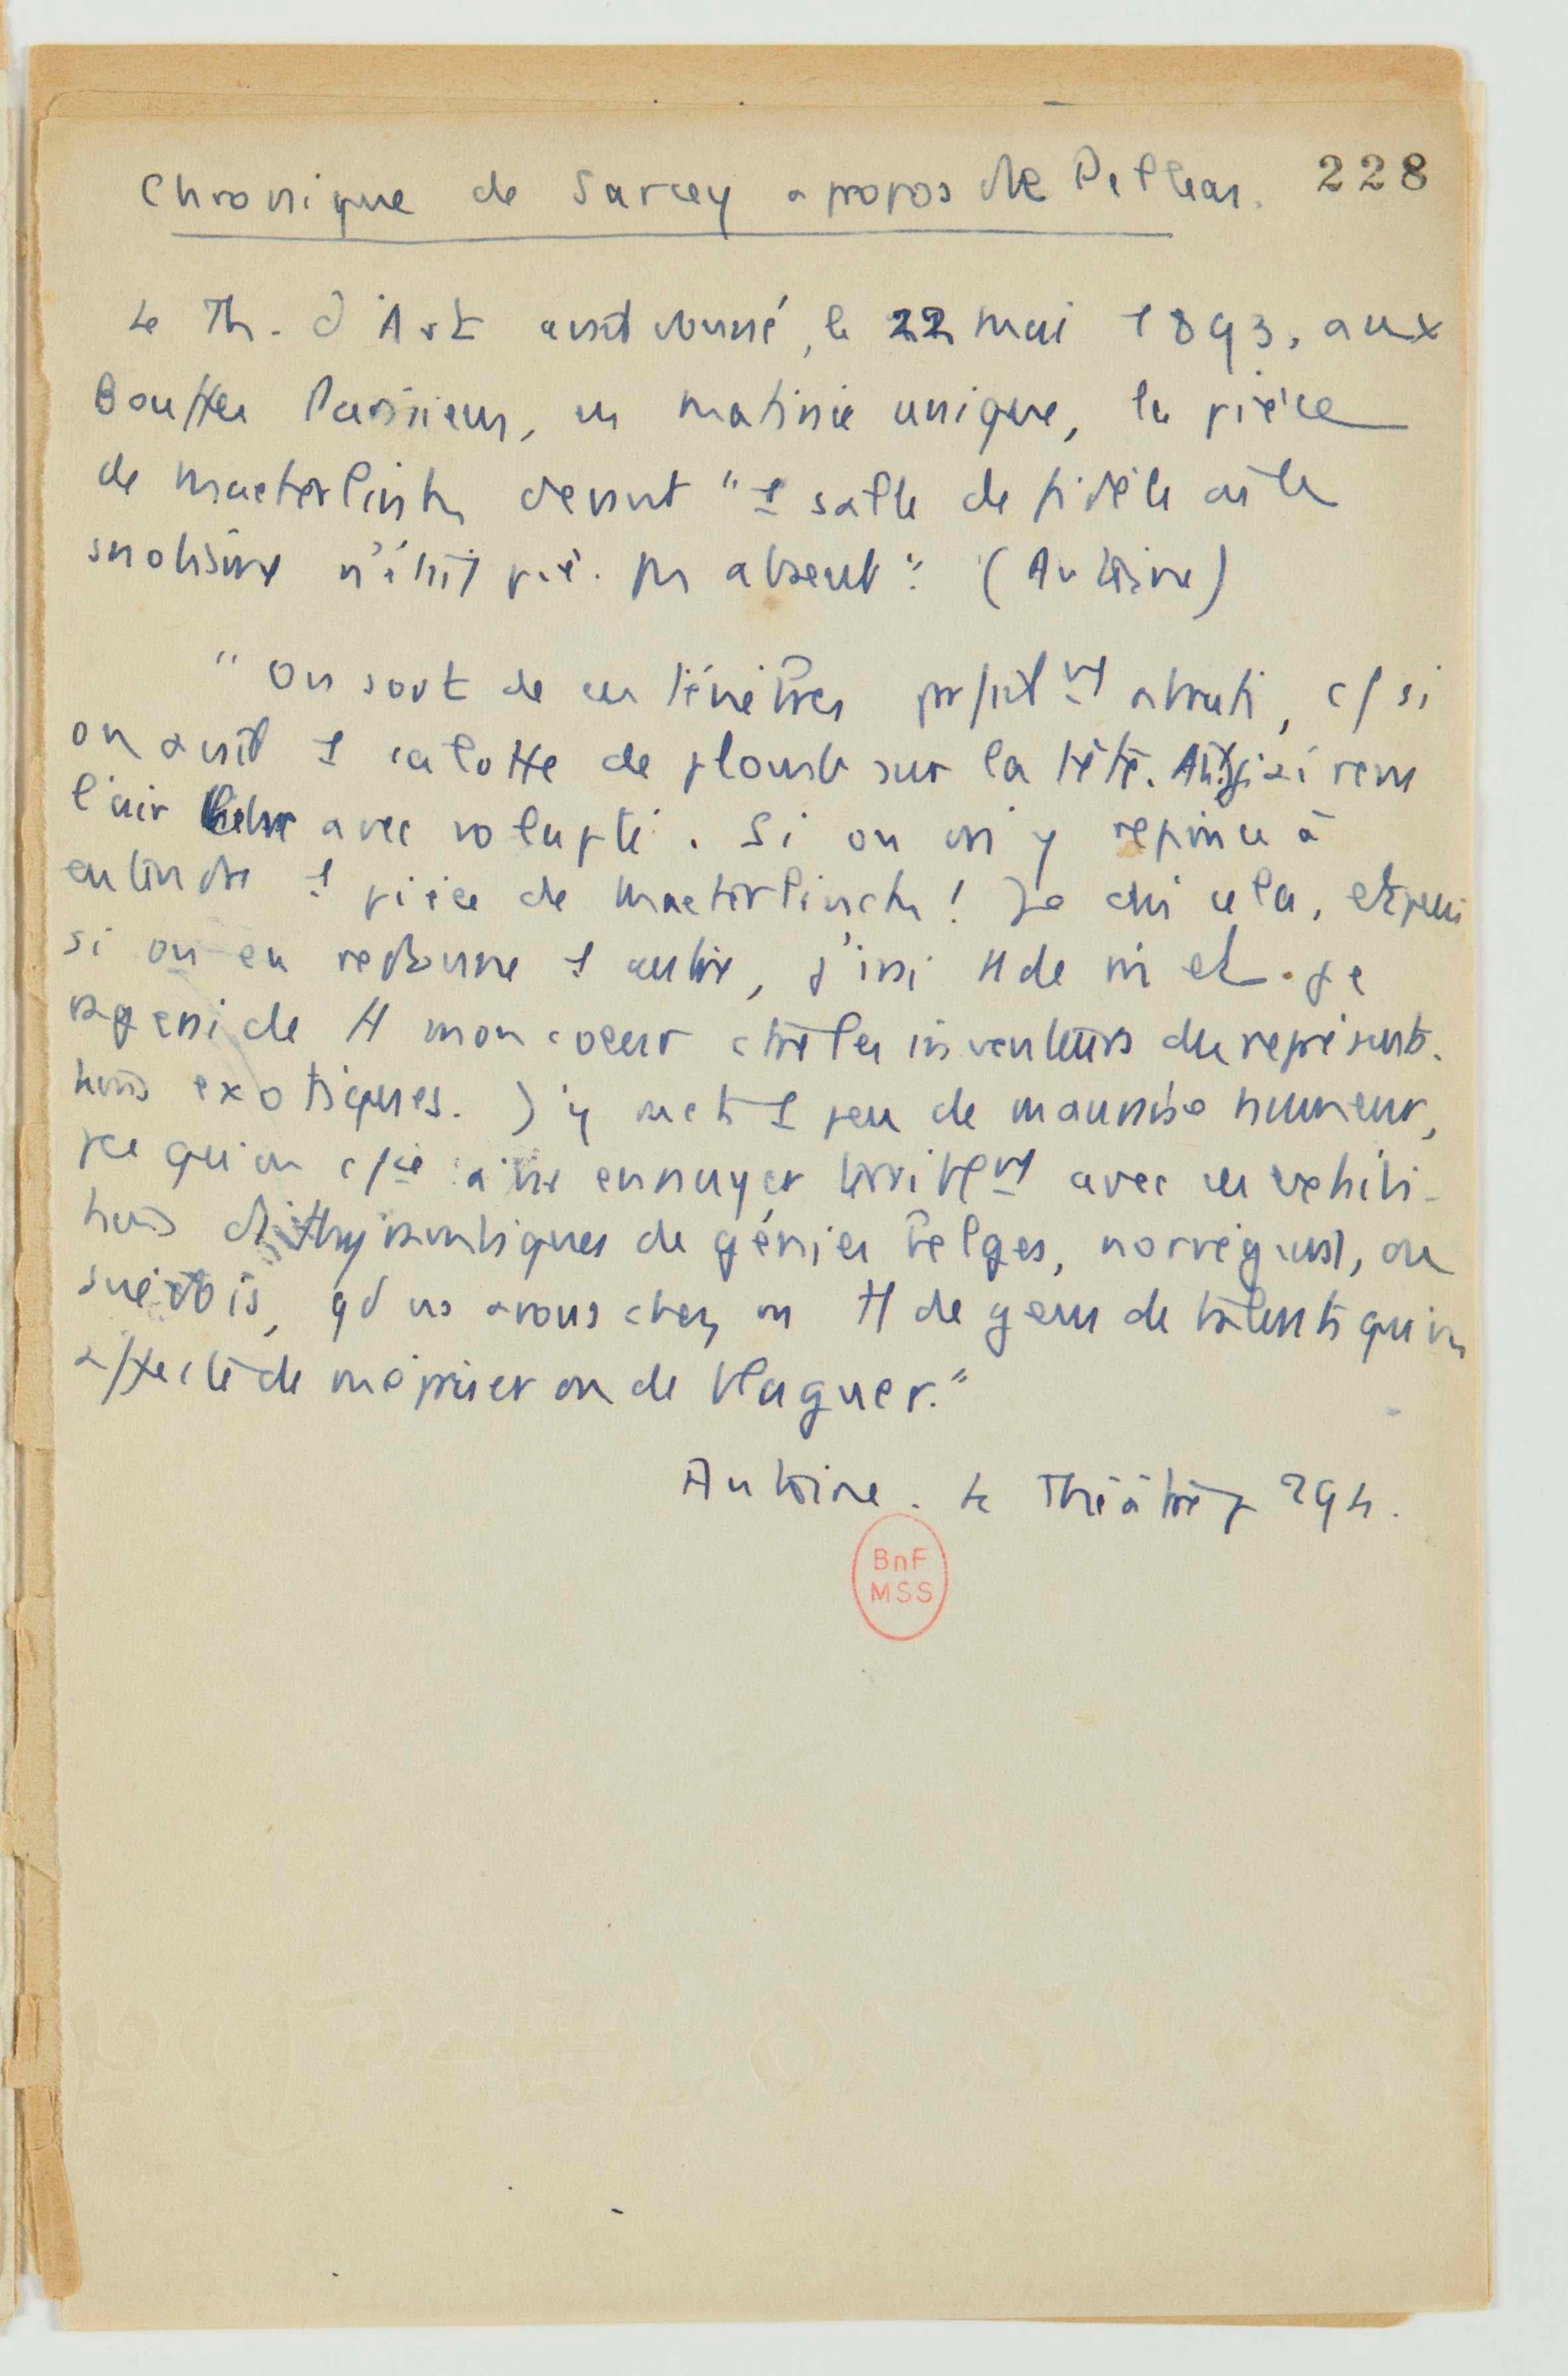 Chronique de Sarcey a propos de Pelleas. 228
Le Th. d'Art avait donné, le 22 mai 1893, aux
Bouffes Parisiens, en matinée unique, la pièce
de Maeterlinck devant " 1 salle de fidèle où le
snobisme n'était pas absent " (Antoine)
" On sort de ces ténèbres abruti, c/ si
on avait 1 calotte de plomb sur la tête.
l'air avec volupté. Si on m'y repince à
entendre 1 pièce de Maeterlinck ! Je dis cela, et puis
si on en redonne 1 autre, j'irai tt de m et je
de tt mon coeur ctre les inventeurs de représenta-
tions exotiques. J'y mets 1 peu de mauvaise humeur,
pce qu'on à me ennuyer terriblemt avec ces
tions dithyrambiques de génies belges, norvégiens, ou
suédois, qd ns avons chez ns tt de gens de talents qu'on
affecte de mépriser ou de blaguer."
Antoine. Le Théâtre p 294.
BnF
MSS